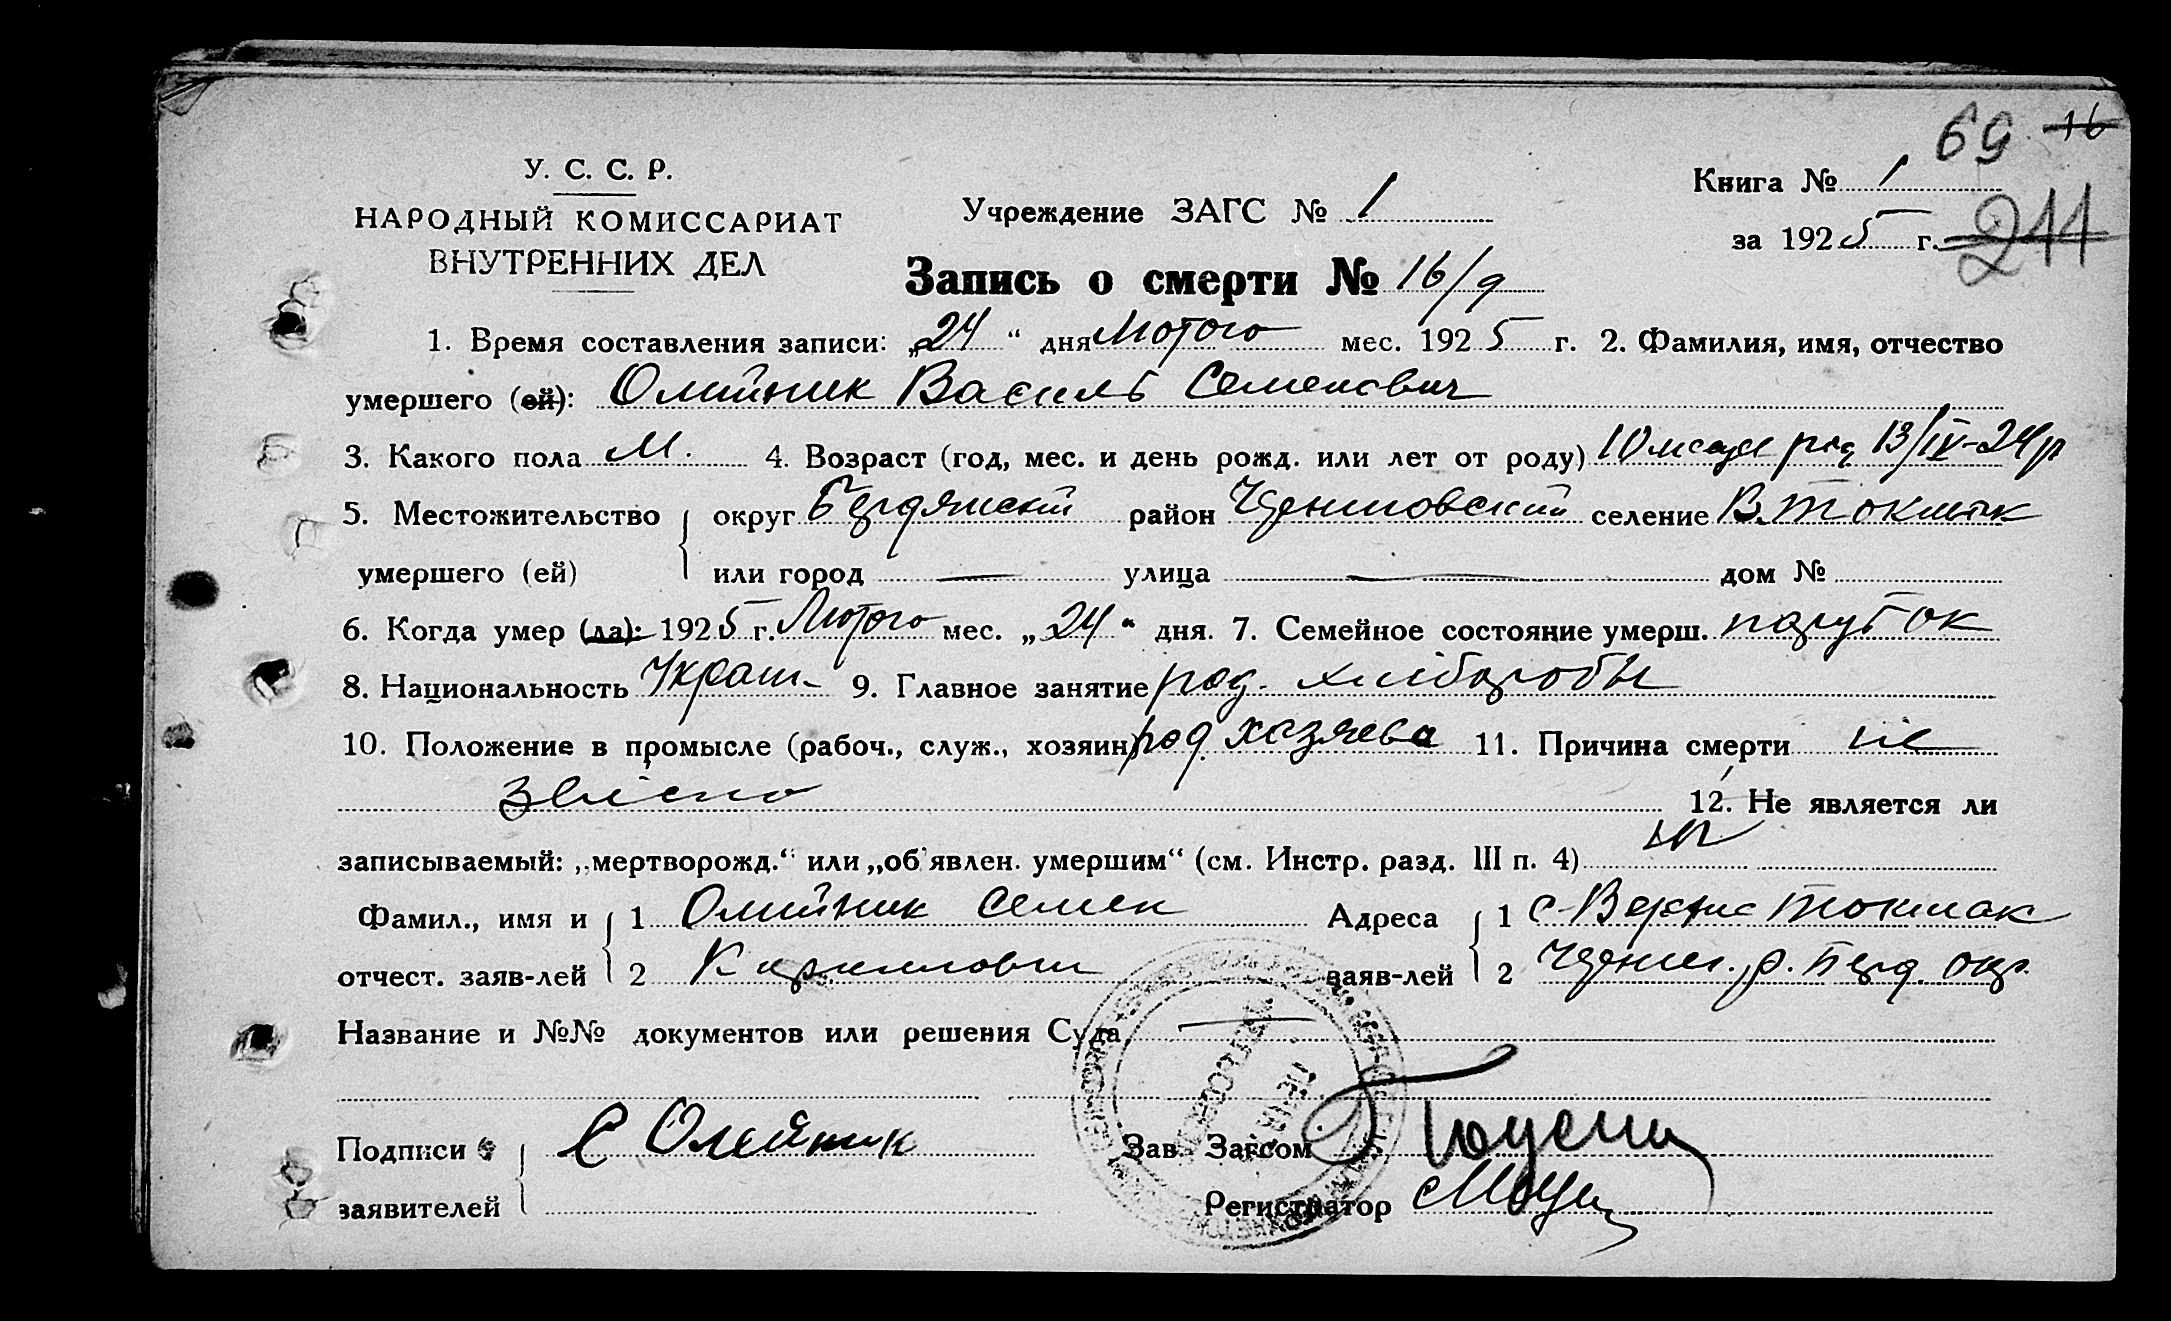 69 16
У. С. С. Р.
НАРОДНЫЙ КОМИССАРИАТ
ВНУТРЕННИХ ДЕЛ
Учреждение ЗАГС № 1
Книга № 1
за 1925 г. 244
Запись о смерти № 16/9
1. Время составления записи: „24“ дня Лютого мес. 1925 г. 2. Фамилия, имя, отчество
умершего (ей): Олійник Василь Семенович
3. Какого пола М. 4. Возраст (год, мес. и день рожд. или лет от роду) 10 месяце род 13/IV-24 р
5. Местожительство округ Бердянский район Черниговский селение В. Токмак
умершего (ей) или город — улица — дом №
6. Когда умер (ла): 1925 г. Лютого мес. „24“ дня. 7. Семейное состояние умерш. паруbок
8. Национальность Украин. 9. Главное занятие род. хлібороbы
10. Положение в промысле (рабоч., служ., хозяин) род. хазяева 11. Причина смерти не
звісно 12. Не является ли
записываемый: „мертворожд.“ или „об'явлен. умершим“ (см. Инстр. разд. III п. 4) ні
Фамил., имя и 1 Олийник Семен Адреса 1 с. Верхне Токмак
отчест. заяв-лей 2 Кириллович заяв-лей 2 Черниг. р. Берд. окр.
Название и №№ документов или решения Суда —
Подписи С Олейник Зав. Загсом
заявителей Регистратор